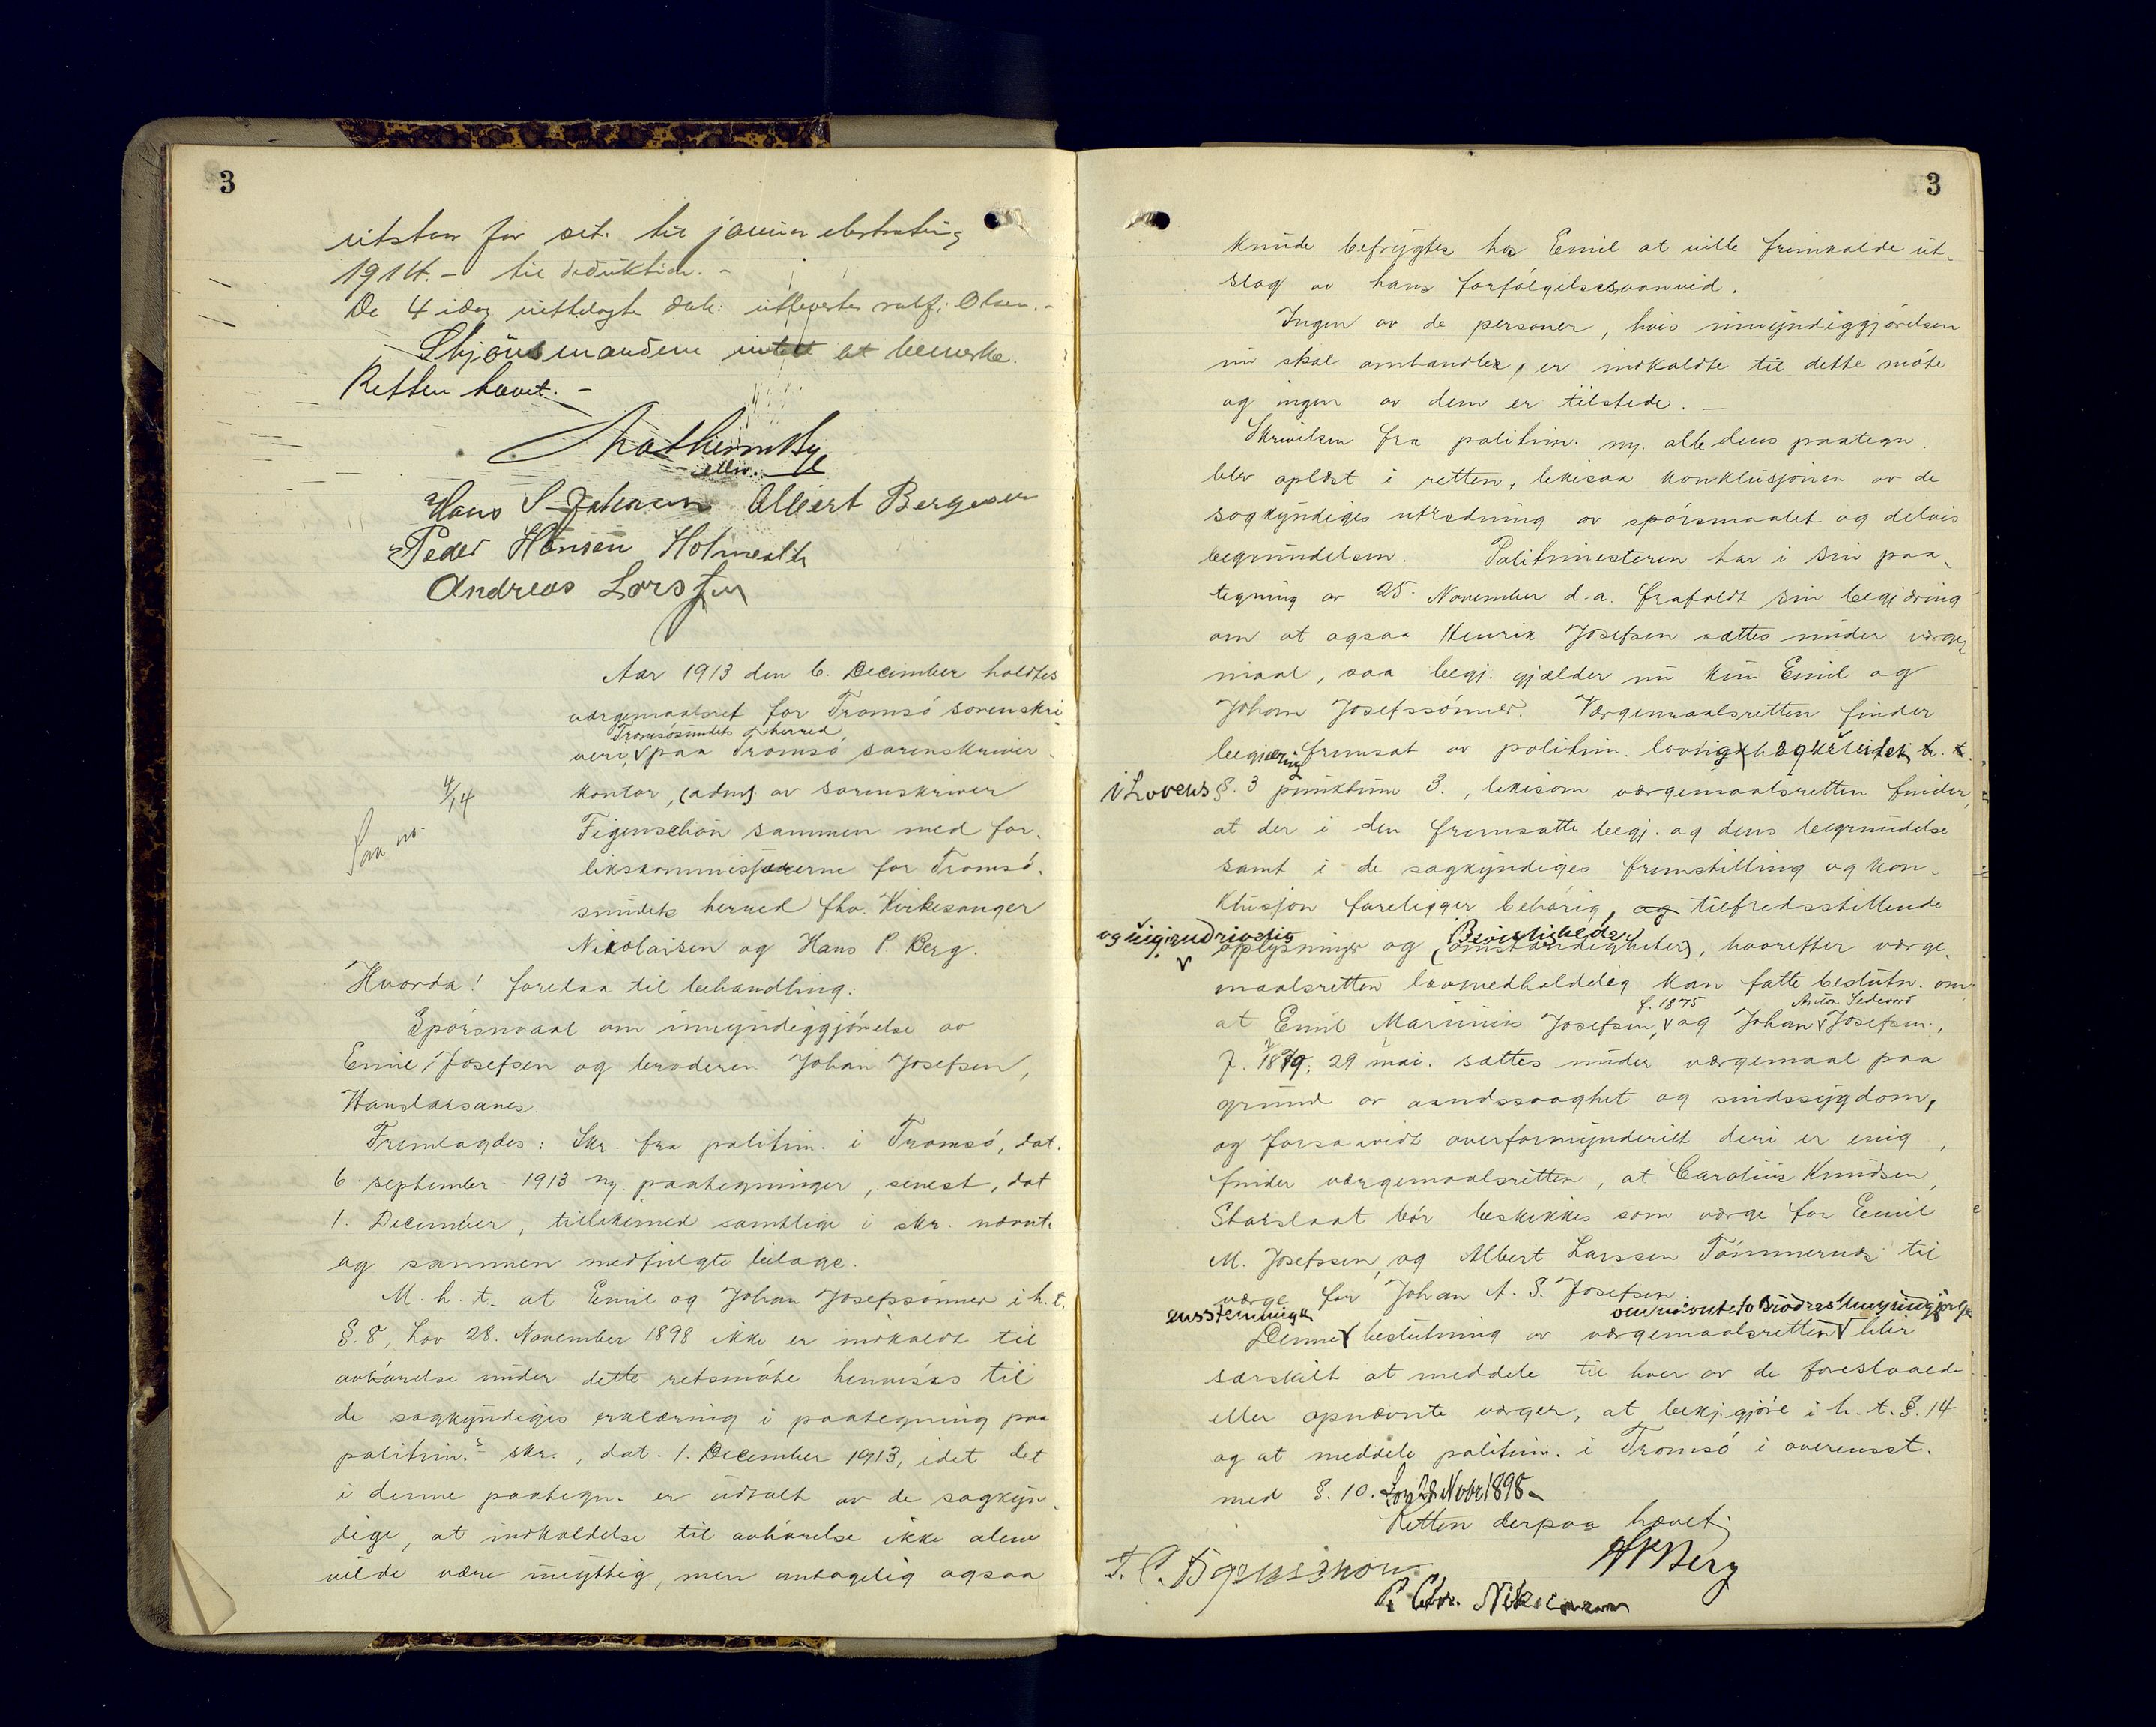 3
utstar for set. til januar
1914. – til deduktion. –
De 4 idag dok: Olsen. –
Skjönsmændene intet at bemerke.
Retten hævet. –
Hans S. Johansen Albert Bergesen
Peder Hansen
Andreas Larssen
Aar 1913 den 6. December holdtes
værgemaalsret for Tromsö sorenskri
Tromsösundets herred,
veri, V paa Tromsö sorenskriver
kontor, (adm) av sorenskriver
4/14
Figenschou sammen med for-
likskommissærerne for Tromsö-
sundets herred fhv. Kirkesanger
Nikolaisen og Hans P. Berg.
Hvorda! forelaa til behandling:
Spörsmaal om umyndiggjörelse av
Emil Josefsen og broderen Johan Josefsen,
Hanslarsanes.
Fremlagdes: Skr. fra politim. i Tromsö, dat.
6. september 1913 m. paategninger, senest, dat
1. December, tillikemed samtlige i skr. nævnte
og sammen medfulgte bilage.
M. h. t. at Emil og Johan Josefssönner i h. t.
§. 8, Lov 28. November 1898 ikke er indkaldt til
avhörelse under dette retsmöte henvises til
de sagkyndiges erklæring i paategning paa
politim.s skr., dat. 1. December 1913, idet det
i denne paategn. er udtalt av de sagkyn-
dige, at indkaldelse til avhörelse ikke alene
vilde være unyttig, men antagelig ogsaa
3
kunde befrygtes hos Emil at ville fremkalde ut-
slag av hans forfölgelsesvanvid.
Ingen av de personer, hvis umyndiggjörelsen
nu skal omhandles, er indkaldte til dette möte
og ingen av dem er tilstede. –
Skrivelsen fra politim. m. alle dens paategn.
blev oplæst i retten, likesaa konklusjonen av de
sagkyndiges utredning av spörsmaalet og delvis
begrundelsen. Politimesteren har i sin paa-
tegning av 25. November d. a. frafaldt sin begjæring
om at ogsaa Henrik Josefsen sættes under værge-
maal, saa begj. gjælder nu kun Emil og
Johan Josefssönner. Værgemaalsretten finder
begjæring fremsat av politim. lovlig
i Lovens §. 3 punktum 3., likesom værgemaalsretten finder,
at der i den fremsatte begj. og dens begrundelse
samt i de sagkyndiges fremstilling og kon-
klusjon foreligger behörig, og tilfredsstillende
og uigiendrivelig
oplysninger og (omstændigheter), hvorefter værge-
maalsretten lovmedholdelig kan fatte beslutn. om
f. 1875 Anton Sedevard
at Emil Marinius Josefsen, V og Johan V Josefsen,
f. 1879. 29 mai. sættes under værgemaal paa
grund av aandssvaghet og sindssygdom,
og forsaavidt overformynderiet deri er enig,
finder værgemaalsretten, at Carolius Knudsen,
Storslaat bör beskikkes som værge for Emil
M. Josefssen, og Albert Larssen Tömmernes til
værge for Johan A. S. Josefsen.
eensstemmige om nævnte to Brödres Umyndiggjörelse
Denne V beslutning av værgemaalsretten V blir
særskilt at meddele til hver av de foreslaaede
eller opnævnte værger, at bekj.gjöre i h. t. §. 14
og at meddele politim. i Tromsö i overensst.
med §. 10. Lov 28 Novbr 1898 –
Retten derpaa hævet.
F. C. Figenschou HPBerg
P. Chr. Nikolaisen